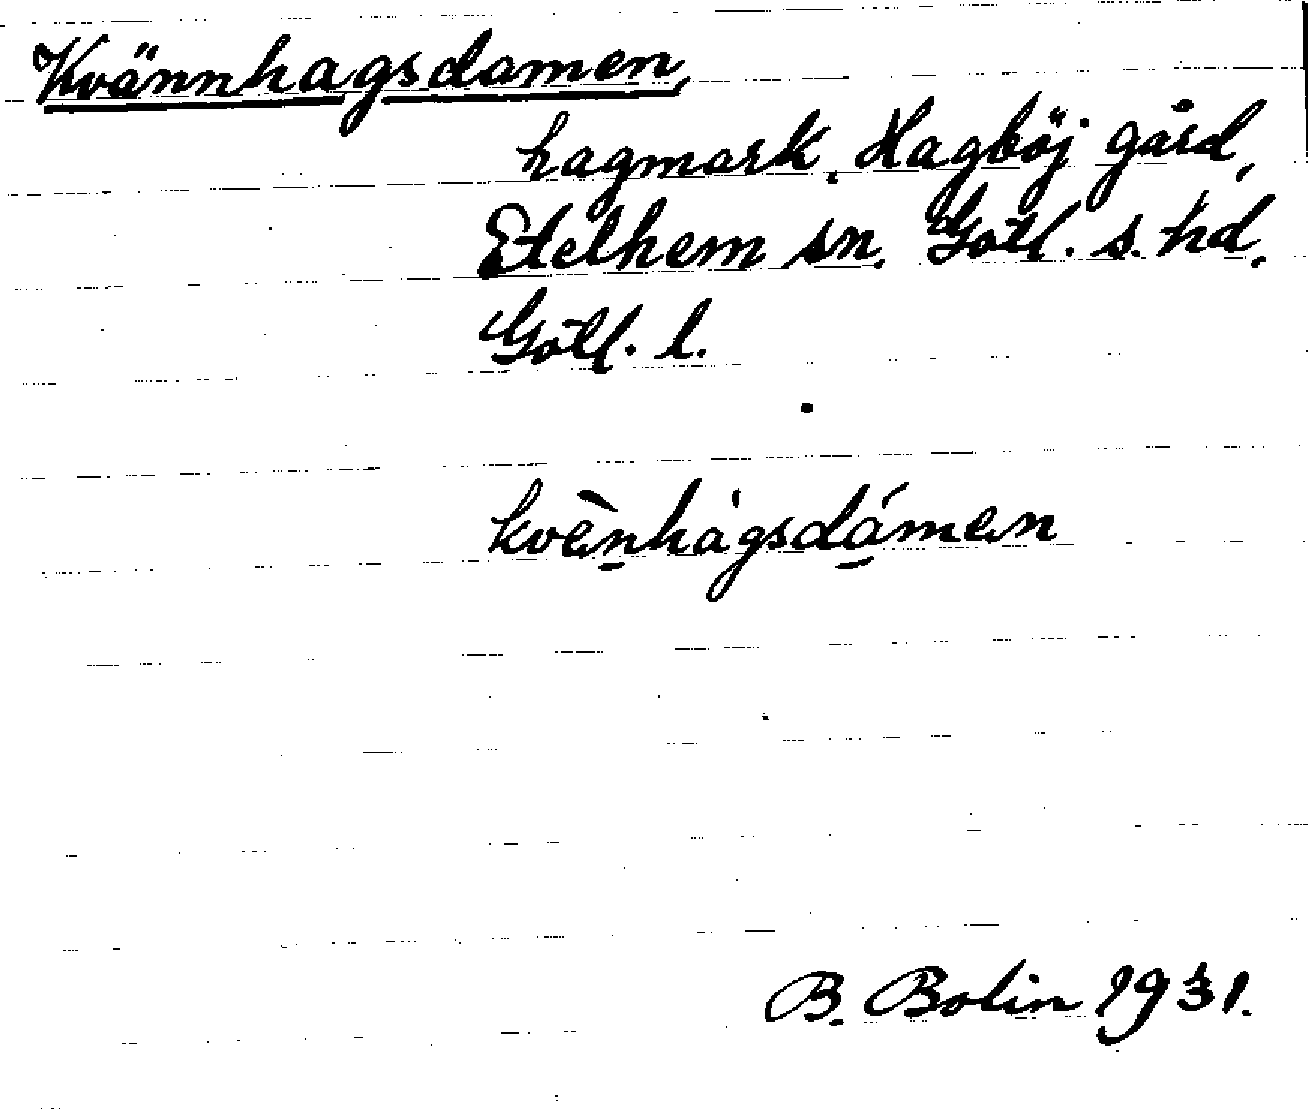 Kvännhagsdamen,
hagmark, Hagböj gård,
Etelhem sn. Gotl. s. hd.
Gotl. l.
kvènhágsdámen
B. Bolin 1931.